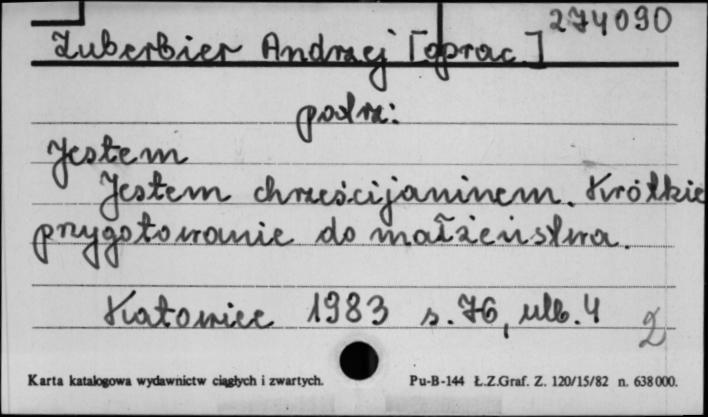 274090
Zuberbier Andrzej [oprac.]
patrz:
Jestem
Jestem chrześcijaninem. Krótkie
przygotowanie do małżeństwa.
Katowice 1983 s. 76, ulb. 4
2
Karta katalogowa wydawnictw ciągłych i zwartych. Pu-B-144 Ł.Z.Graf. Z. 120/15/82 n. 638 000.